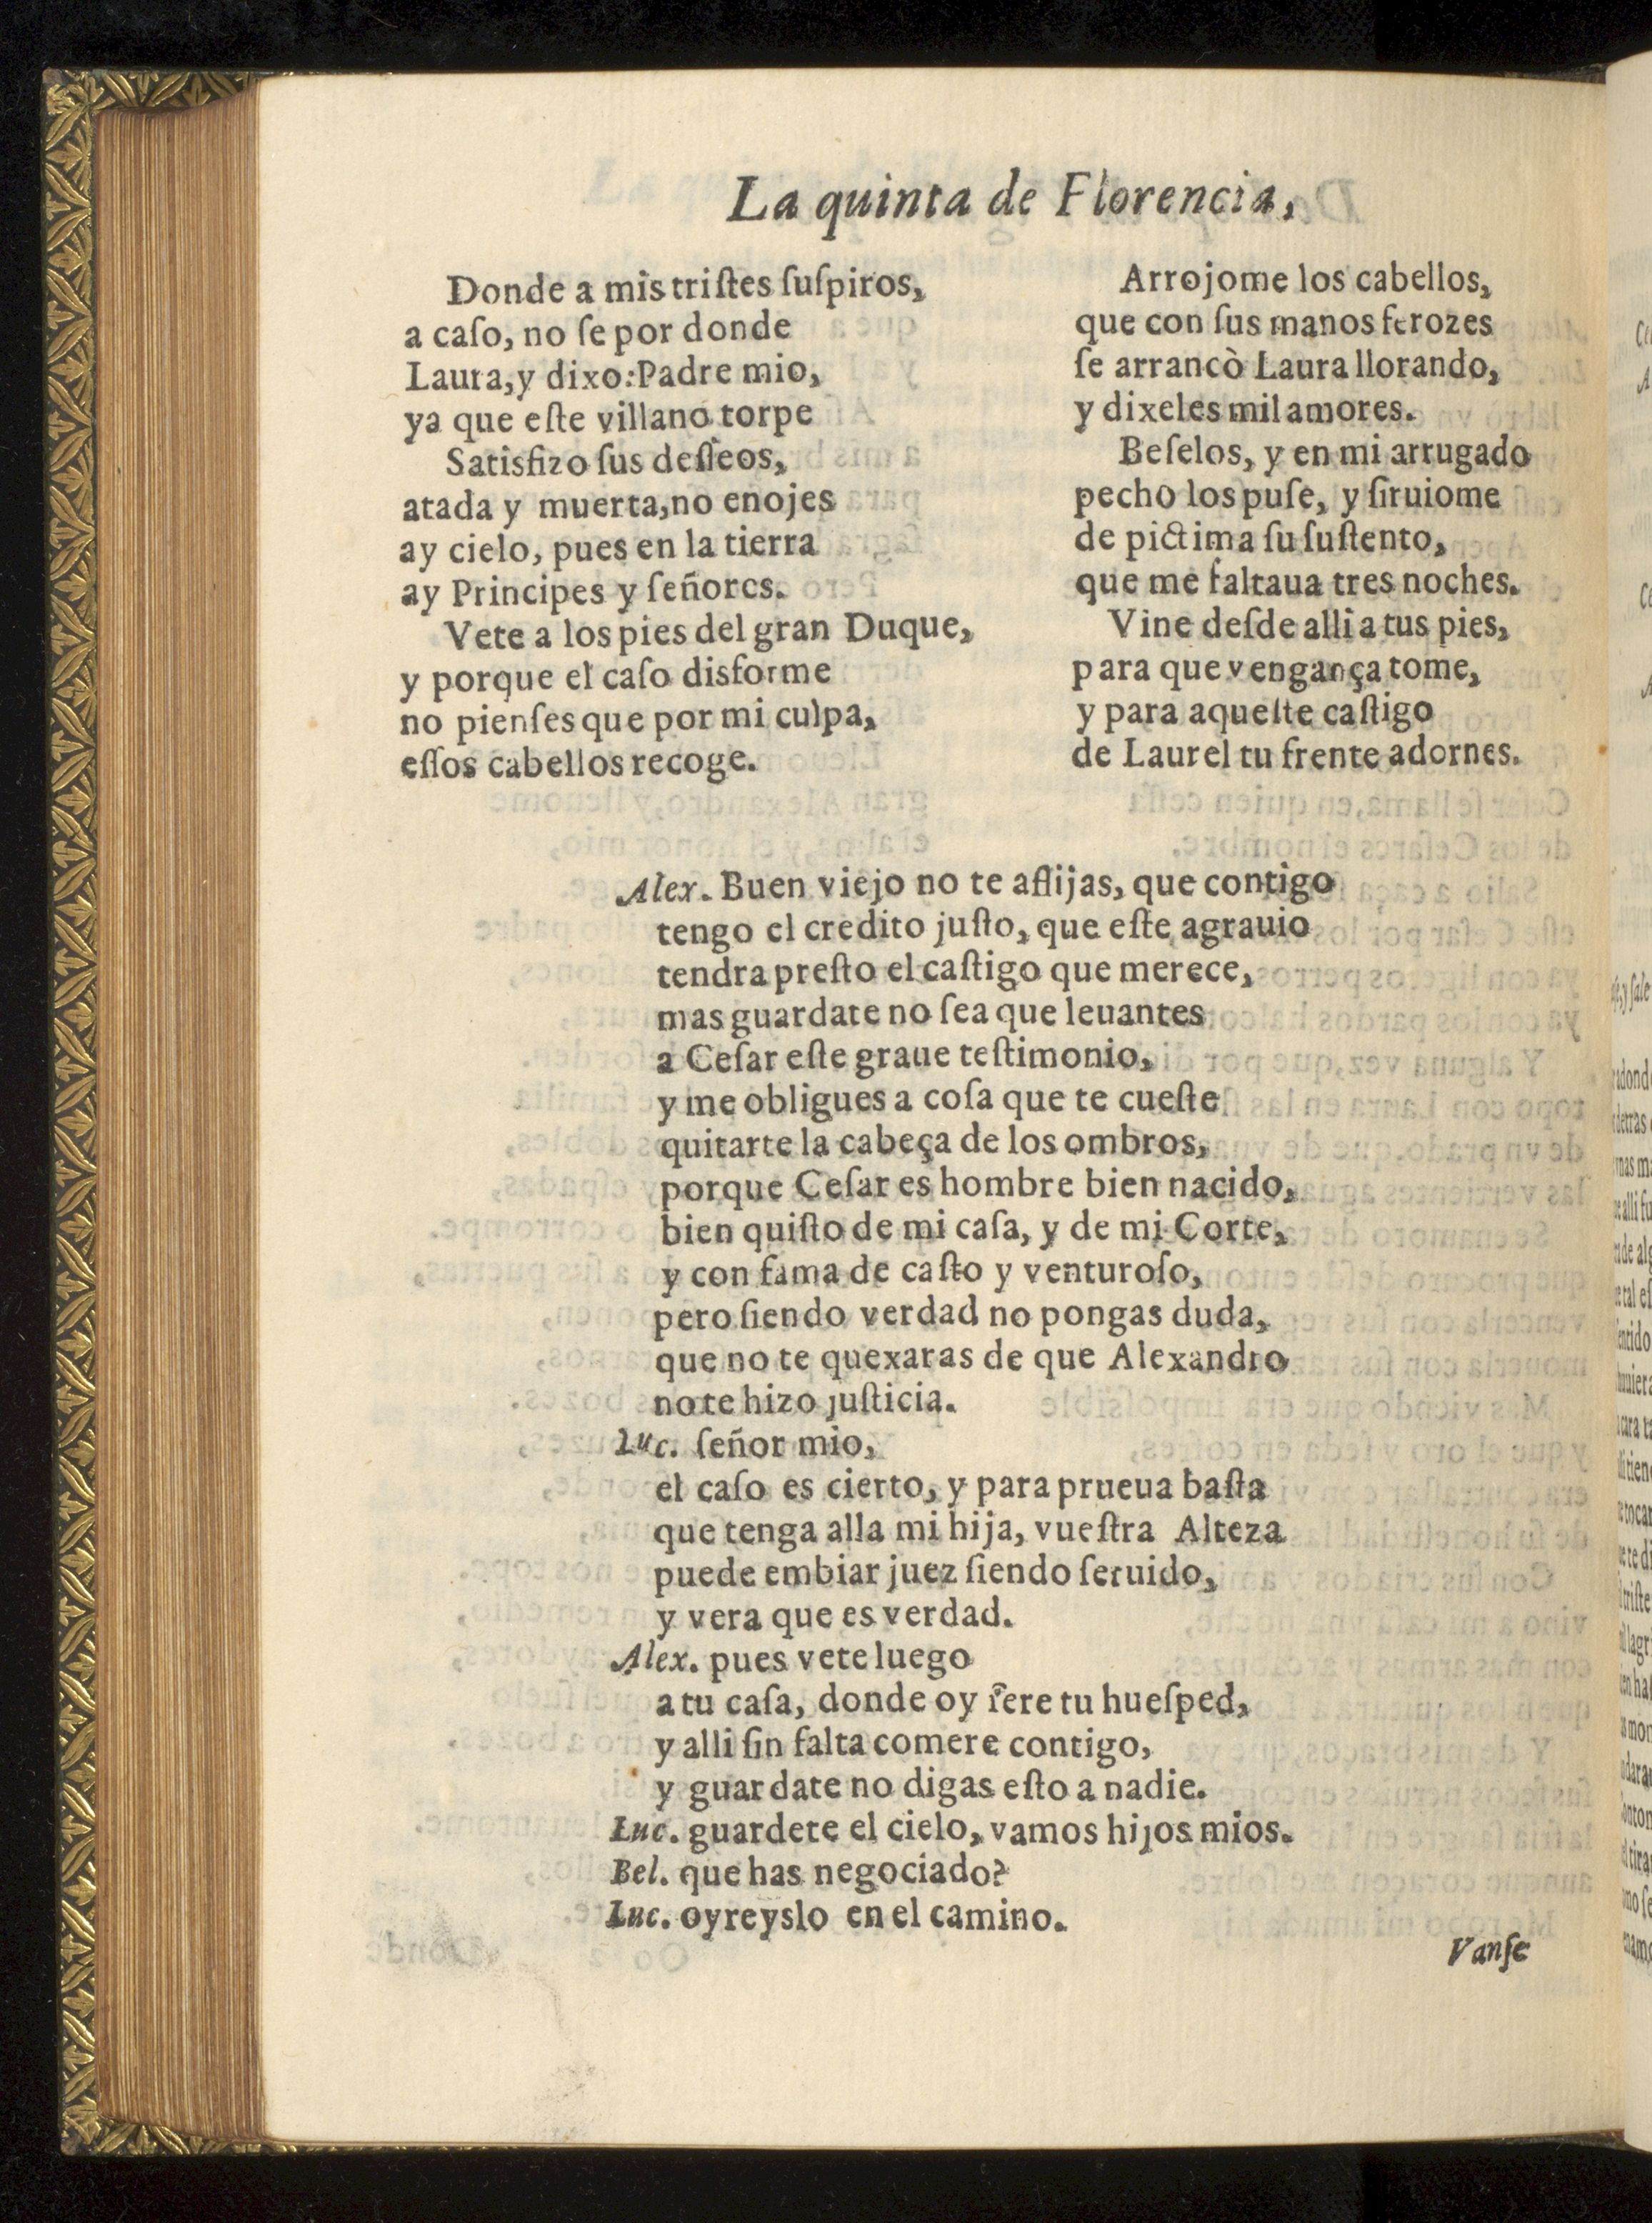 La quinta de Florencia,
Donde a mis tristes ſuſpiros,
a caſo, no ſe por donde
Laura, y dixo: Padre mio,
ya que eſte villano torpe
Satisfizo ſus deſſeos,
atada y muerta, no enojes
ay cielo, pues en la tierra
ay Principes y ſeñores.
Vete a los pies del gran Duque,
y porque el caſo disforme
no pienſes que por mi culpa,
eſſos cabellos recoge.
Arrojome los cabellos,
que con ſus manos ferozes
ſe arrancò Laura llorando,
y dixeles mil amores.
Beſelos, y en mi arrugado
pecho los puſe, y ſiruiome
de pictima ſu ſuſtento,
que me faltaua tres noches.
Vine deſde alli a tus pies,
para que vengança tome,
y para aqueſte caſtigo
de Laurel tu frente adornes.
Alex. Buen viejo no te aflijas, que contigo
tengo el credito juſto, que eſte agrauio
tendra preſto el caſtigo que merece,
mas guardate no ſea que leuantes
a Ceſar eſte graue teſtimonio,
y me obligues a coſa que te cueſte
quitarte la cabeça de los ombros,
porque Ceſar es hombre bien nacido,
bien quiſto de mi caſa, y de mi Corte,
y con fama de caſto y venturoſo,
pero ſiendo verdad no pongas duda,
que no te quexaras de que Alexandro
no te hizo juſticia.
Luc. ſeñor mio,
el caſo es cierto, y para prueua baſta
que tenga alla mi hija, vueſtra Alteza
puede embiar juez ſiendo ſeruido,
y vera que es verdad.
Alex. pues vete luego
a tu caſa, donde oy ſere tu hueſped,
y alli ſin falta comere contigo,
y guardate no digas eſto a nadie.
Luc. guardete el cielo, vamos hijos mios.
Bel. que has negociado?
Luc. oyreyslo en el camino.
Vanſe